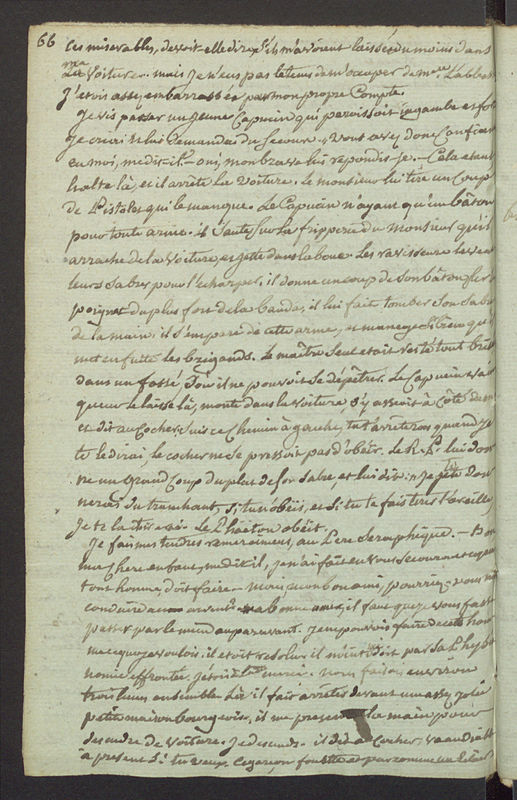 66
ces miserables, devoit-elle dire, s'ils m'avoient laissée du moins dans
ma Voiture. mais je n'eus pas le tems de m'occuper de Mde L'abbesse
J'etois assez embarrassée par mon propre Compte.
Je vis passer un jeune Capucin qui paroissoit ingambe et fort
je criai et lui demandai du Secours. Vous avez donc Confiance
en moi, me dit-il - oui, mon brave lui repondis-je. - Cela etant
halte là, et il arrête la Voiture. le monsieur lui tire un Coup
de Pistolet qui le manque. Le Capucin n'ayant qu'un bâton
pour toute arme. il Saute Sur la fripperie du Monsieur qu'il
arrache de la Voiture, et jette dans la boue. Les ravisseurs levent
leurs Sabres pour l'echarper, il donne un coup de Son bâton sur le
poignet du plus fort de la bande, il lui fait tomber Son Sabre
de la main. il S'empare de cette arme, et manege Si bien qu'il
met en fuite les brigands. Le maître Seul etait resté tout brisé
dans un fossé d'où il ne pouvoit Se dépêtrer. Le Capucin vain
queur le laisse là, monte dans la voiture, S'y asseoit à Côté de moi
et dit au Cocher, Suis ce Chemin à gauche, tu t'arrêteras quand je
te le dirai, le cocher ne Se pressoit pas d'obéir. Le R. P. lui don
ne un grand Coup du plat de Son Sabre et lui dit : Je te don
nerai du tranchant, Si tu n'obéis, et Si tu te fais tirer l'oreille
Je te la
Le Phaëton obéit.
Je fais mes tendres remercimens, au Pere Seraphique. - Bon
ma Chere enfant, me dit-il, j'en ai fait en Vous Secourant ce que
tout homme doit faire - Mais, mon bon ami, pourriez-vous me
conduire au
bonne
il faut que je vous fasse
passer par le mien auparavant. Je ne pouvois faire de cet hom
me ce que je voulois. il etoit resolu. il
par Sa Phisio
nomie effrontée.
nous faisons environ
trois lieues ensemble. Là il fait arrêter devant une assez jolie
petite maison bourgeoise. il me presente la main pour
descendre de Voiture. Je descends. il dit au Cocher, va au diable
à present Si tu veux. Ce garçon fouette et part comme un éclair